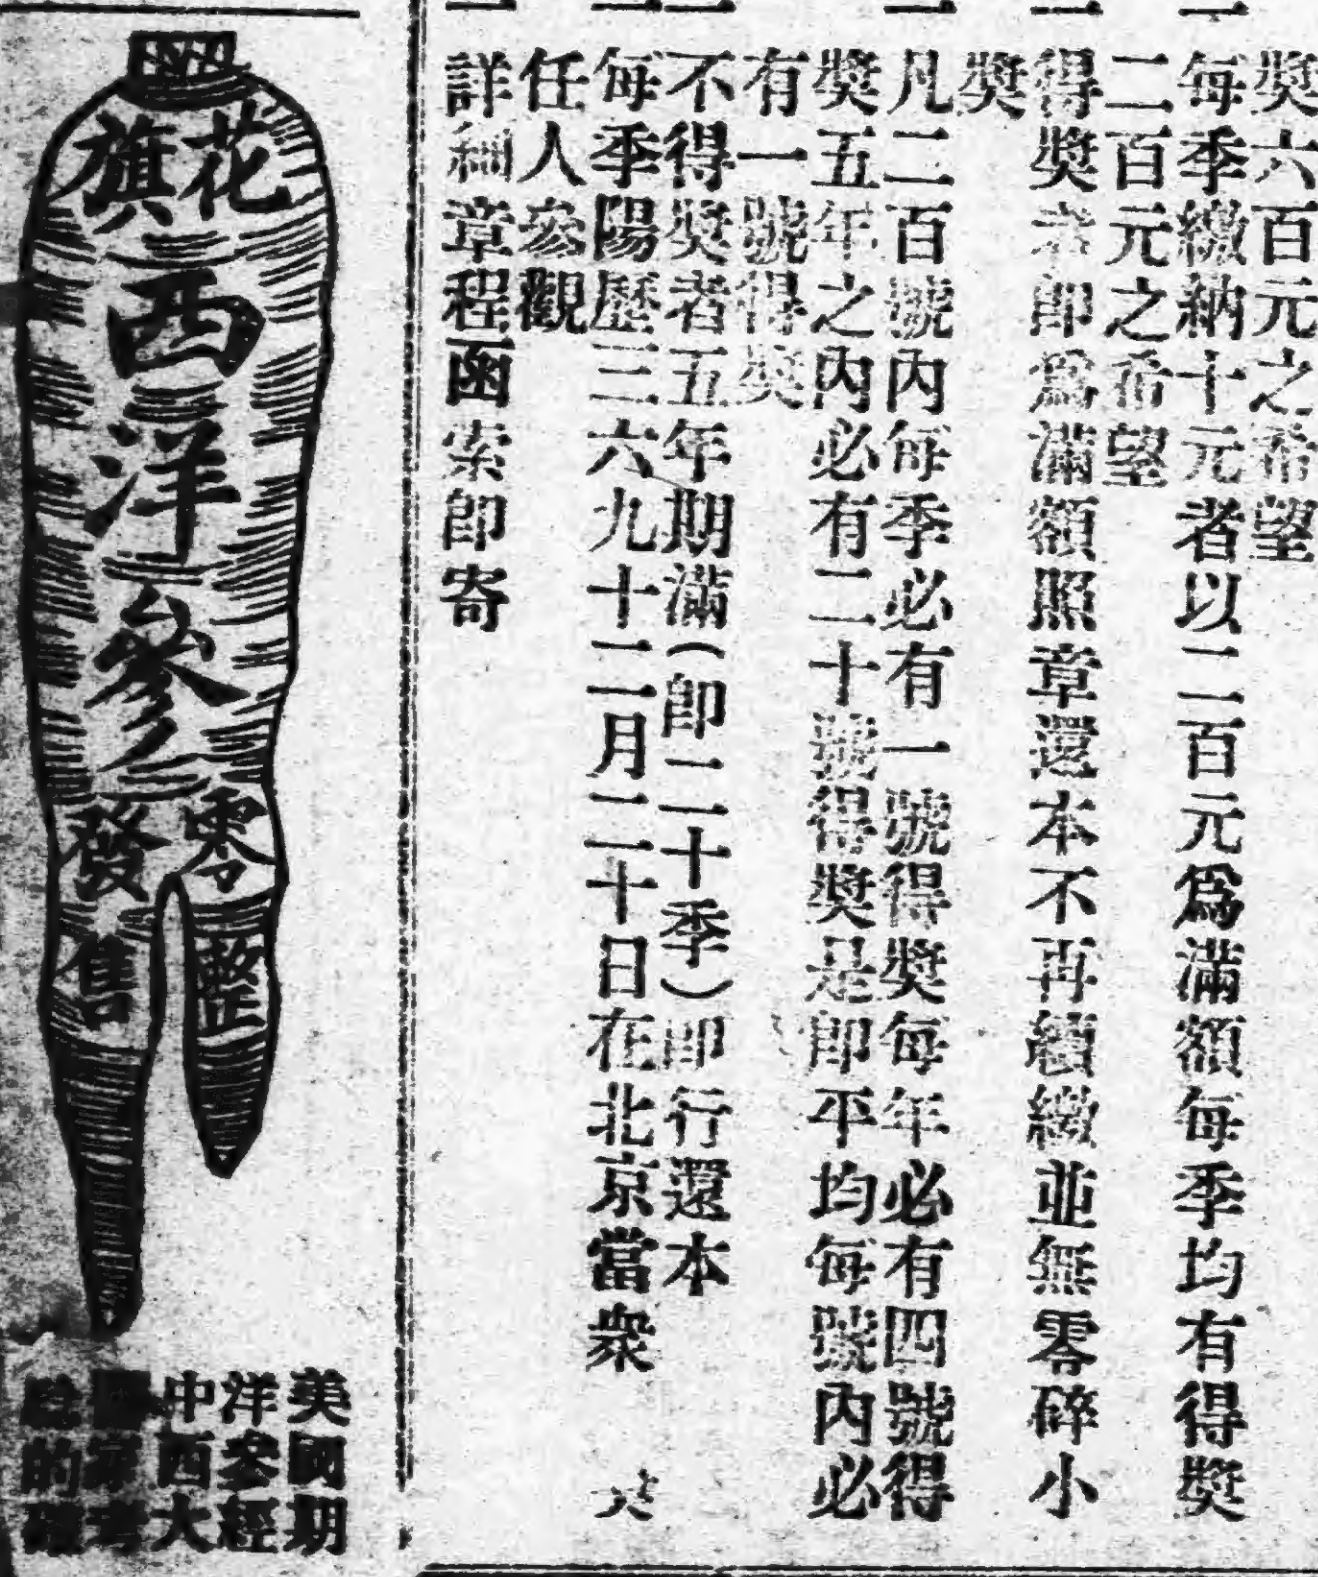 獎六百元之希望
一 每季繳納十元者以二百元爲滿額每季均有得獎
二百元之希望
一 得獎者卽爲滿額照章還本不再續繳並無零碎小
獎
一 凡二百號內每季必有一號得獎每年必有四號得
獎五年之內必有二十號得獎是卽平均每號內必
有一號得獎
一 不得獎者五年期滿(卽二十季)卽行還本
一 每季陽歷三六九十二月二十日在北京當衆
任人參觀
一 詳細章程函索卽寄
花旗
西洋參
零整
發售
美國期
洋參經
中西大
家考
的確